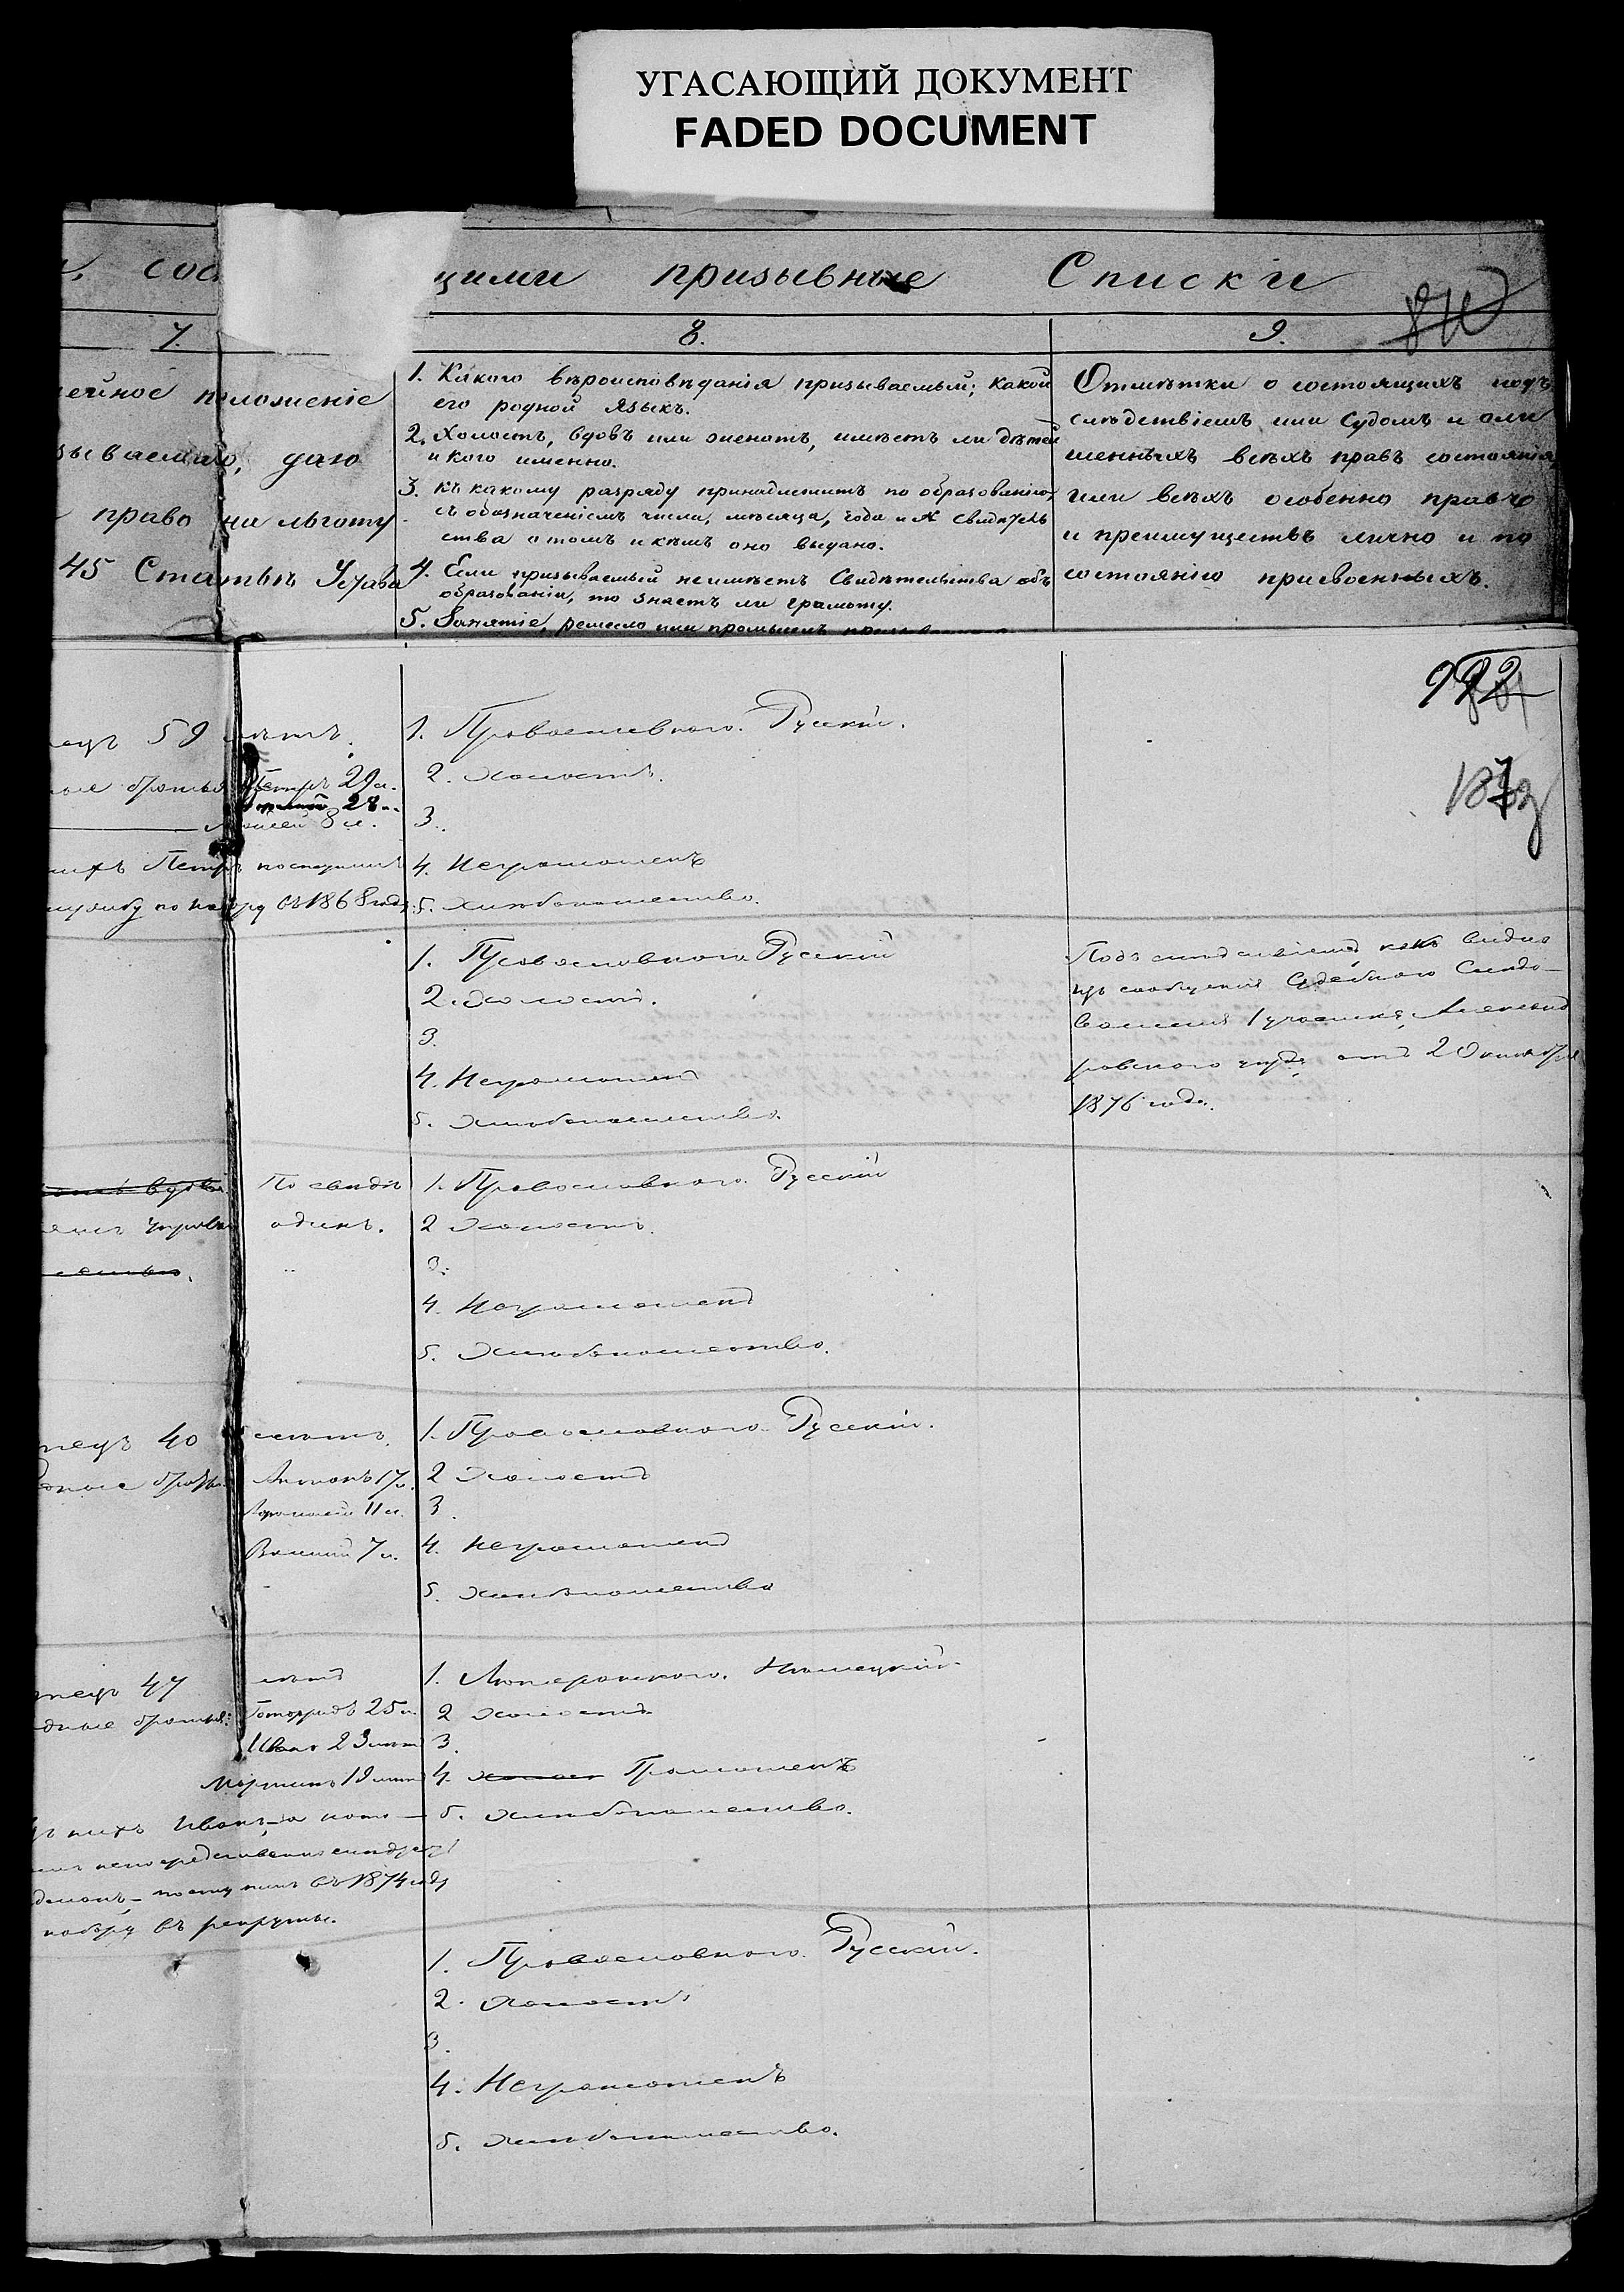 УГАСАЮЩИЙ ДОКУМЕНТ
FADED DOCUMENT
щими призывные Списки
7. 8. 9.
ейное положеніе
зываемаго, даю
право на льготу
45 Статьѣ Устава
1. Какого вѣроисповѣданія призываемый; какой
его родной языкъ.
2. Холостъ, вдовъ или женатъ, имѣетъ ли дѣтей
и кого именно.
3. къ какому разряду принадлежитъ по образованію
съ обозначеніемъ числа, мѣсяца, года и № свидѣтель
ства о томъ и кѣмъ оно выдано.
4. Если призываемый неимѣетъ Свидѣтельства объ
образованіи, то знаетъ ли грамоту.
5. Занятіе, ремесло или промыселъ
Отмѣтки о состоящихъ подъ
слѣдствіемъ или Судомъ и ли
шенныхъ всѣхъ правъ состоянія
или всѣхъ особенно правъ
и преимуществъ лично и по
состоянію присвоенныхъ.
59 лѣтъ.
Петръ 29 л.
28 л.
8 л.
Петръ поступилъ
службу по набору въ 1868 году
1. Православнаго. Русскій.
2. Холостъ.
3.
4. Неграмотенъ
5. Хлѣбопашество.
1. Православнаго Русскій
2. Холостъ.
3.
4. Неграмотенъ
5. Хлѣбопашество.
Подъ слѣдствіемъ, какъ видно
изъ сообщенія Судебнаго Слѣдо-
вателя 1 участка, Александ
ровскаго уѣзда, отъ 2 Октября
1876 года.
одинъ.
1. Православнаго. Русскій
2 Холостъ.
3.
4. Неграмотенъ
5. Хлѣбопашество.
отецъ 40 лѣтъ.
Антонъ 17 л.
11 л.
Василій 7 л.
1. Православнаго. Русскій.
2 Холостъ
3.
4. Неграмотенъ
5. Хлѣбопашество
отецъ 47 лѣтъ
родные братья: Готфридъ 25 л.
Иванъ 23 лѣтъ
Мартинъ 19 лѣтъ
изъ нихъ Иванъ, за кото-
непосредственно слѣдуетъ
поступилъ въ 1874 году
набору въ рекруты.
1. Лютеранскаго. Нѣмецкій.
2 Холостъ
3.
4. Грамотенъ
5. Хлѣбопашество.
1. Православнаго. Русскій.
2. Холостъ
3.
4. Неграмотенъ
5. Хлѣбопашество.